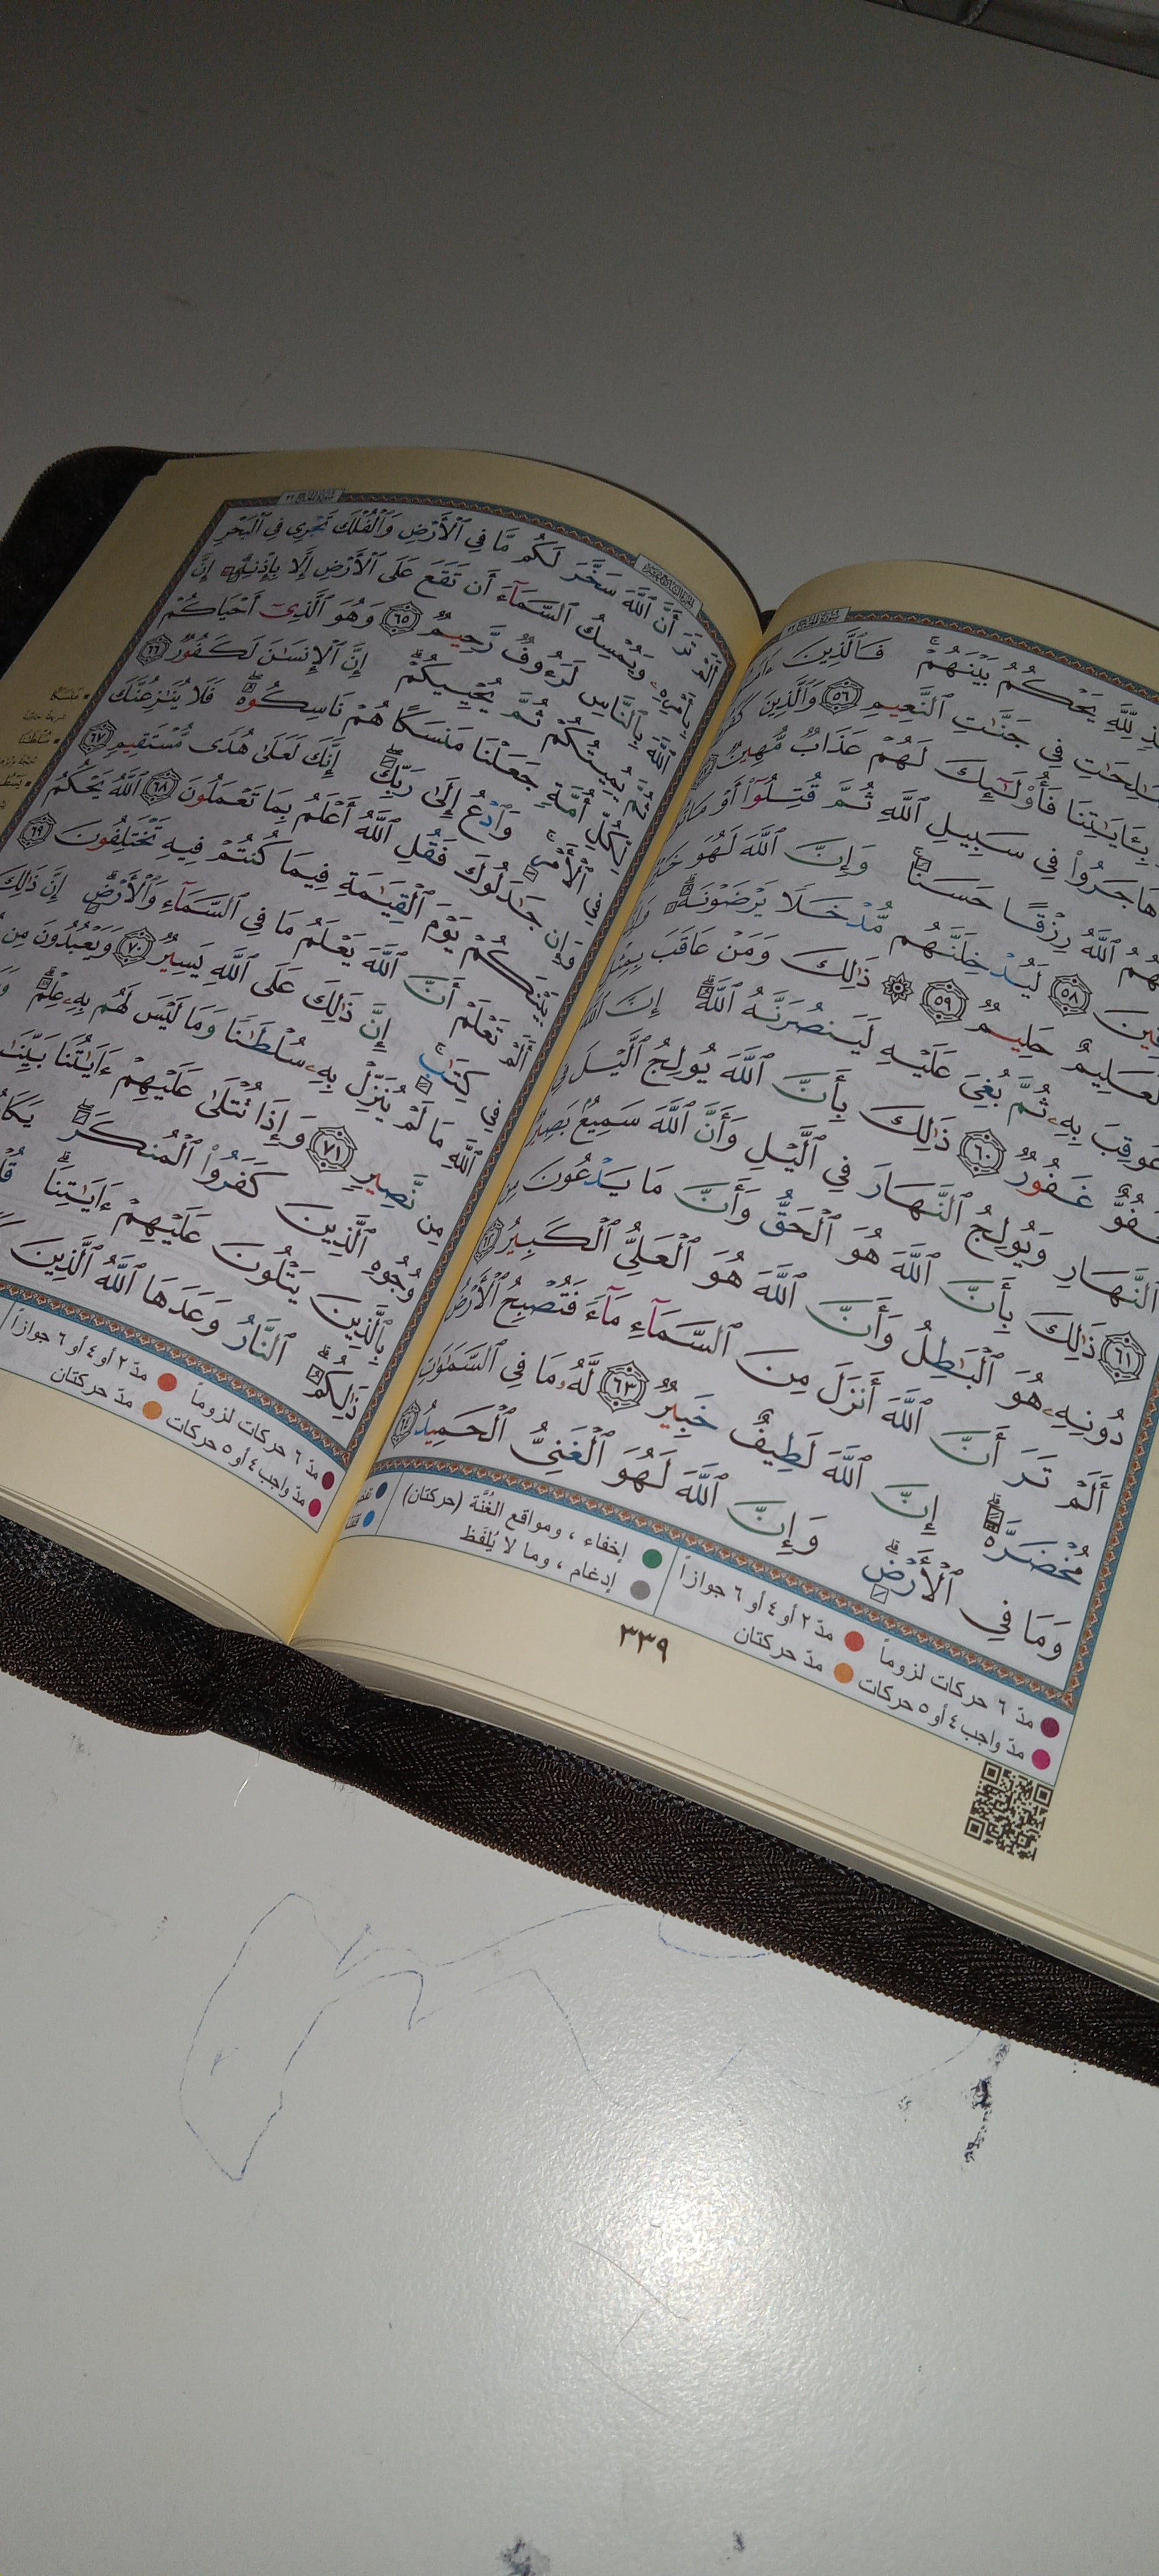 لِّلَّهِ يَحْكُمُ بَيْنَهُمْ ۚ فَٱلَّذِينَ
فِى جَنَّٰتِ ٱلنَّعِيمِ ٥٦ وَٱلَّذِينَ
بِـَٔايَٰتِنَا فَأُو۟لَٰٓئِكَ لَهُمْ عَذَابٌ مُّهِينٌ
هَاجَرُوا۟ فِى سَبِيلِ ٱللَّهِ ثُمَّ قُتِلُوٓا۟ أَوْ
ٱللَّهُ رِزْقًا حَسَنًا ۚ وَإِنَّ ٱللَّهَ لَهُوَ
٥٨ لَيُدْخِلَنَّهُم مُّدْخَلًا يَرْضَوْنَهُۥ ۗ
حَلِيمٌ ٥٩ ۞ ذَٰلِكَ وَمَنْ عَاقَبَ
عُوقِبَ بِهِۦ ثُمَّ بُغِىَ عَلَيْهِ لَيَنصُرَنَّهُ ٱللَّهُ ۗ إِنَّ ٱللَّهَ
غَفُورٌ ٦٠ ذَٰلِكَ بِأَنَّ ٱللَّهَ يُولِجُ ٱلَّيْلَ فِى
ٱلنَّهَارِ وَيُولِجُ ٱلنَّهَارَ فِى ٱلَّيْلِ وَأَنَّ ٱللَّهَ سَمِيعٌۢ بَصِيرٌ
٦١ ذَٰلِكَ بِأَنَّ ٱللَّهَ هُوَ ٱلْحَقُّ وَأَنَّ مَا يَدْعُونَ مِن
دُونِهِۦ هُوَ ٱلْبَٰطِلُ وَأَنَّ ٱللَّهَ هُوَ ٱلْعَلِىُّ ٱلْكَبِيرُ ٦٢
أَلَمْ تَرَ أَنَّ ٱللَّهَ أَنزَلَ مِنَ ٱلسَّمَآءِ مَآءً فَتُصْبِحُ ٱلْأَرْضُ
مُخْضَرَّةً ۗ إِنَّ ٱللَّهَ لَطِيفٌ خَبِيرٌ ٦٣ لَّهُۥ مَا فِى ٱلسَّمَٰوَٰتِ
وَمَا فِى ٱلْأَرْضِ ۗ وَإِنَّ ٱللَّهَ لَهُوَ ٱلْغَنِىُّ ٱلْحَمِيدُ ٦٤
مدّ ٦ حركات لزوماً مدّ ٢ أو ٤ أو ٦ جوازاً إخفاء ، ومواقع الغُنَّة (حركتان)
مدّ واجب ٤ أو ٥ حركات مدّ حركتان إدغام ، وما لا يُلفَظ
٣٣٩
أَلَمْ تَرَ أَنَّ ٱللَّهَ سَخَّرَ لَكُم مَّا فِى ٱلْأَرْضِ وَٱلْفُلْكَ تَجْرِى فِى ٱلْبَحْرِ
بِأَمْرِهِۦ وَيُمْسِكُ ٱلسَّمَآءَ أَن تَقَعَ عَلَى ٱلْأَرْضِ إِلَّا بِإِذْنِهِۦٓ ۗ إِنَّ
ٱللَّهَ بِٱلنَّاسِ لَرَءُوفٌ رَّحِيمٌ ٦٥ وَهُوَ ٱلَّذِىٓ أَحْيَاكُمْ
ثُمَّ يُمِيتُكُمْ ثُمَّ يُحْيِيكُمْ ۗ إِنَّ ٱلْإِنسَٰنَ لَكَفُورٌ ٦٦
لِّكُلِّ أُمَّةٍ جَعَلْنَا مَنسَكًا هُمْ نَاسِكُوهُ ۖ فَلَا يُنَٰزِعُنَّكَ
فِى ٱلْأَمْرِ ۚ وَٱدْعُ إِلَىٰ رَبِّكَ ۖ إِنَّكَ لَعَلَىٰ هُدًى مُّسْتَقِيمٍ ٦٧
وَإِن جَٰدَلُوكَ فَقُلِ ٱللَّهُ أَعْلَمُ بِمَا تَعْمَلُونَ ٦٨ ٱللَّهُ يَحْكُمُ
بَيْنَكُمْ يَوْمَ ٱلْقِيَٰمَةِ فِيمَا كُنتُمْ فِيهِ تَخْتَلِفُونَ ٦٩
أَلَمْ تَعْلَمْ أَنَّ ٱللَّهَ يَعْلَمُ مَا فِى ٱلسَّمَآءِ وَٱلْأَرْضِ ۗ إِنَّ ذَٰلِكَ
فِى كِتَٰبٍ ۚ إِنَّ ذَٰلِكَ عَلَى ٱللَّهِ يَسِيرٌ ٧٠ وَيَعْبُدُونَ مِن
ٱللَّهِ مَا لَمْ يُنَزِّلْ بِهِۦ سُلْطَٰنًا وَمَا لَيْسَ لَهُم بِهِۦ عِلْمٌ ۗ
مِن نَّصِيرٍ ٧١ وَإِذَا تُتْلَىٰ عَلَيْهِمْ ءَايَٰتُنَا بَيِّنَٰتٍ
وُجُوهِ ٱلَّذِينَ كَفَرُوا۟ ٱلْمُنكَرَ ۖ
بِٱلَّذِينَ يَتْلُونَ عَلَيْهِمْ ءَايَٰتِنَا ۗ
ذَٰلِكُمُ ۗ ٱلنَّارُ وَعَدَهَا ٱللَّهُ ٱلَّذِينَ
مدّ ٦ حركات لزوماً مدّ ٢ أو ٤ أو ٦ جوازاً
مدّ واجب ٤ أو ٥ حركات مدّ حركتان